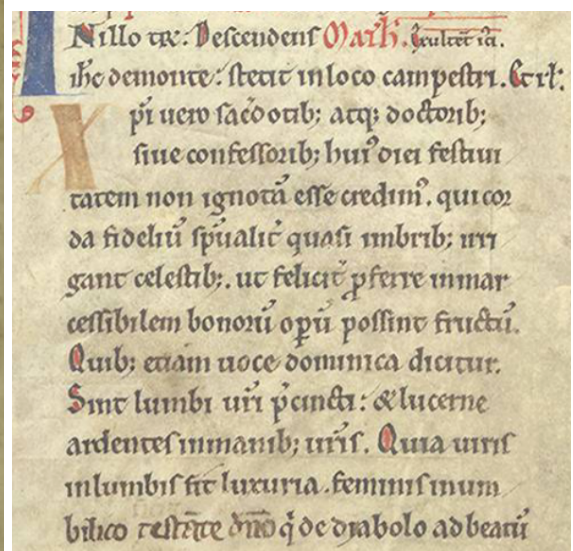 INillo tr̄: Descendens Math̄. Exultet ia.
ih̄c de monte: stetit in loco campestri. Et rł:
Xp̄i uero sac̄dotib; atq; doctorib;
siue confessorib; hui᾽ diei festiui
tatem non ignotā esse credim᾽. qui cor
da fideliū sp̄ualit᾽ quasi imbrib; irri
gant celestib;. ut felicit᾽ p̄ferre inmar
cessibilem bonorū op̄ū possint fructū.
Quib; etiam uoce dominica dicitur.
Sint lumbi ur̄i p̄cincti: & lucerne
ardentes in manib; ur̄is. Quia uiris
in lumbis fit luxuria. feminis in um
bilico testāte dn̄o q̄ de diabolo ad beatū